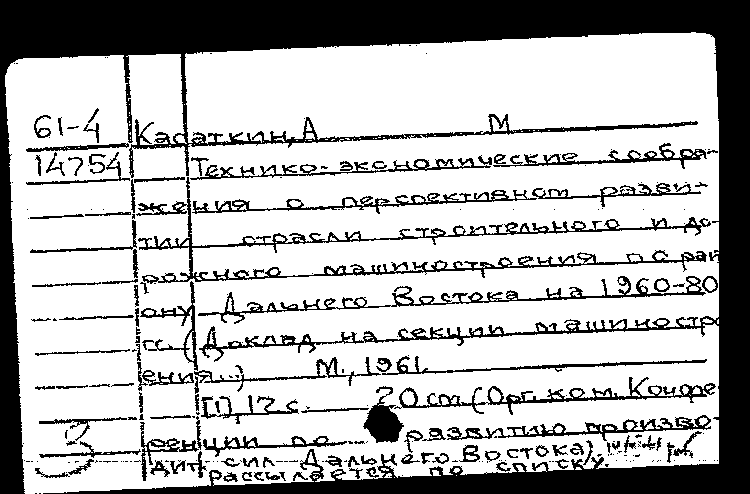 61-4 Касаткин, А М
14754 Технико-экономические сообра-
жения о перспективном разви-
тии отрасли строительного и до-
рожного машиностроения по рай
ону Дальнего Востока на 1960-80
гг. (Доклад на секции машиностро
ения..) М., 1961.
[1], 12 с. 20 см (Орг. ком. Конфе-
3 ренции по развитию произво-
дит. сил Дальнего Востока).
рассылается по списку.